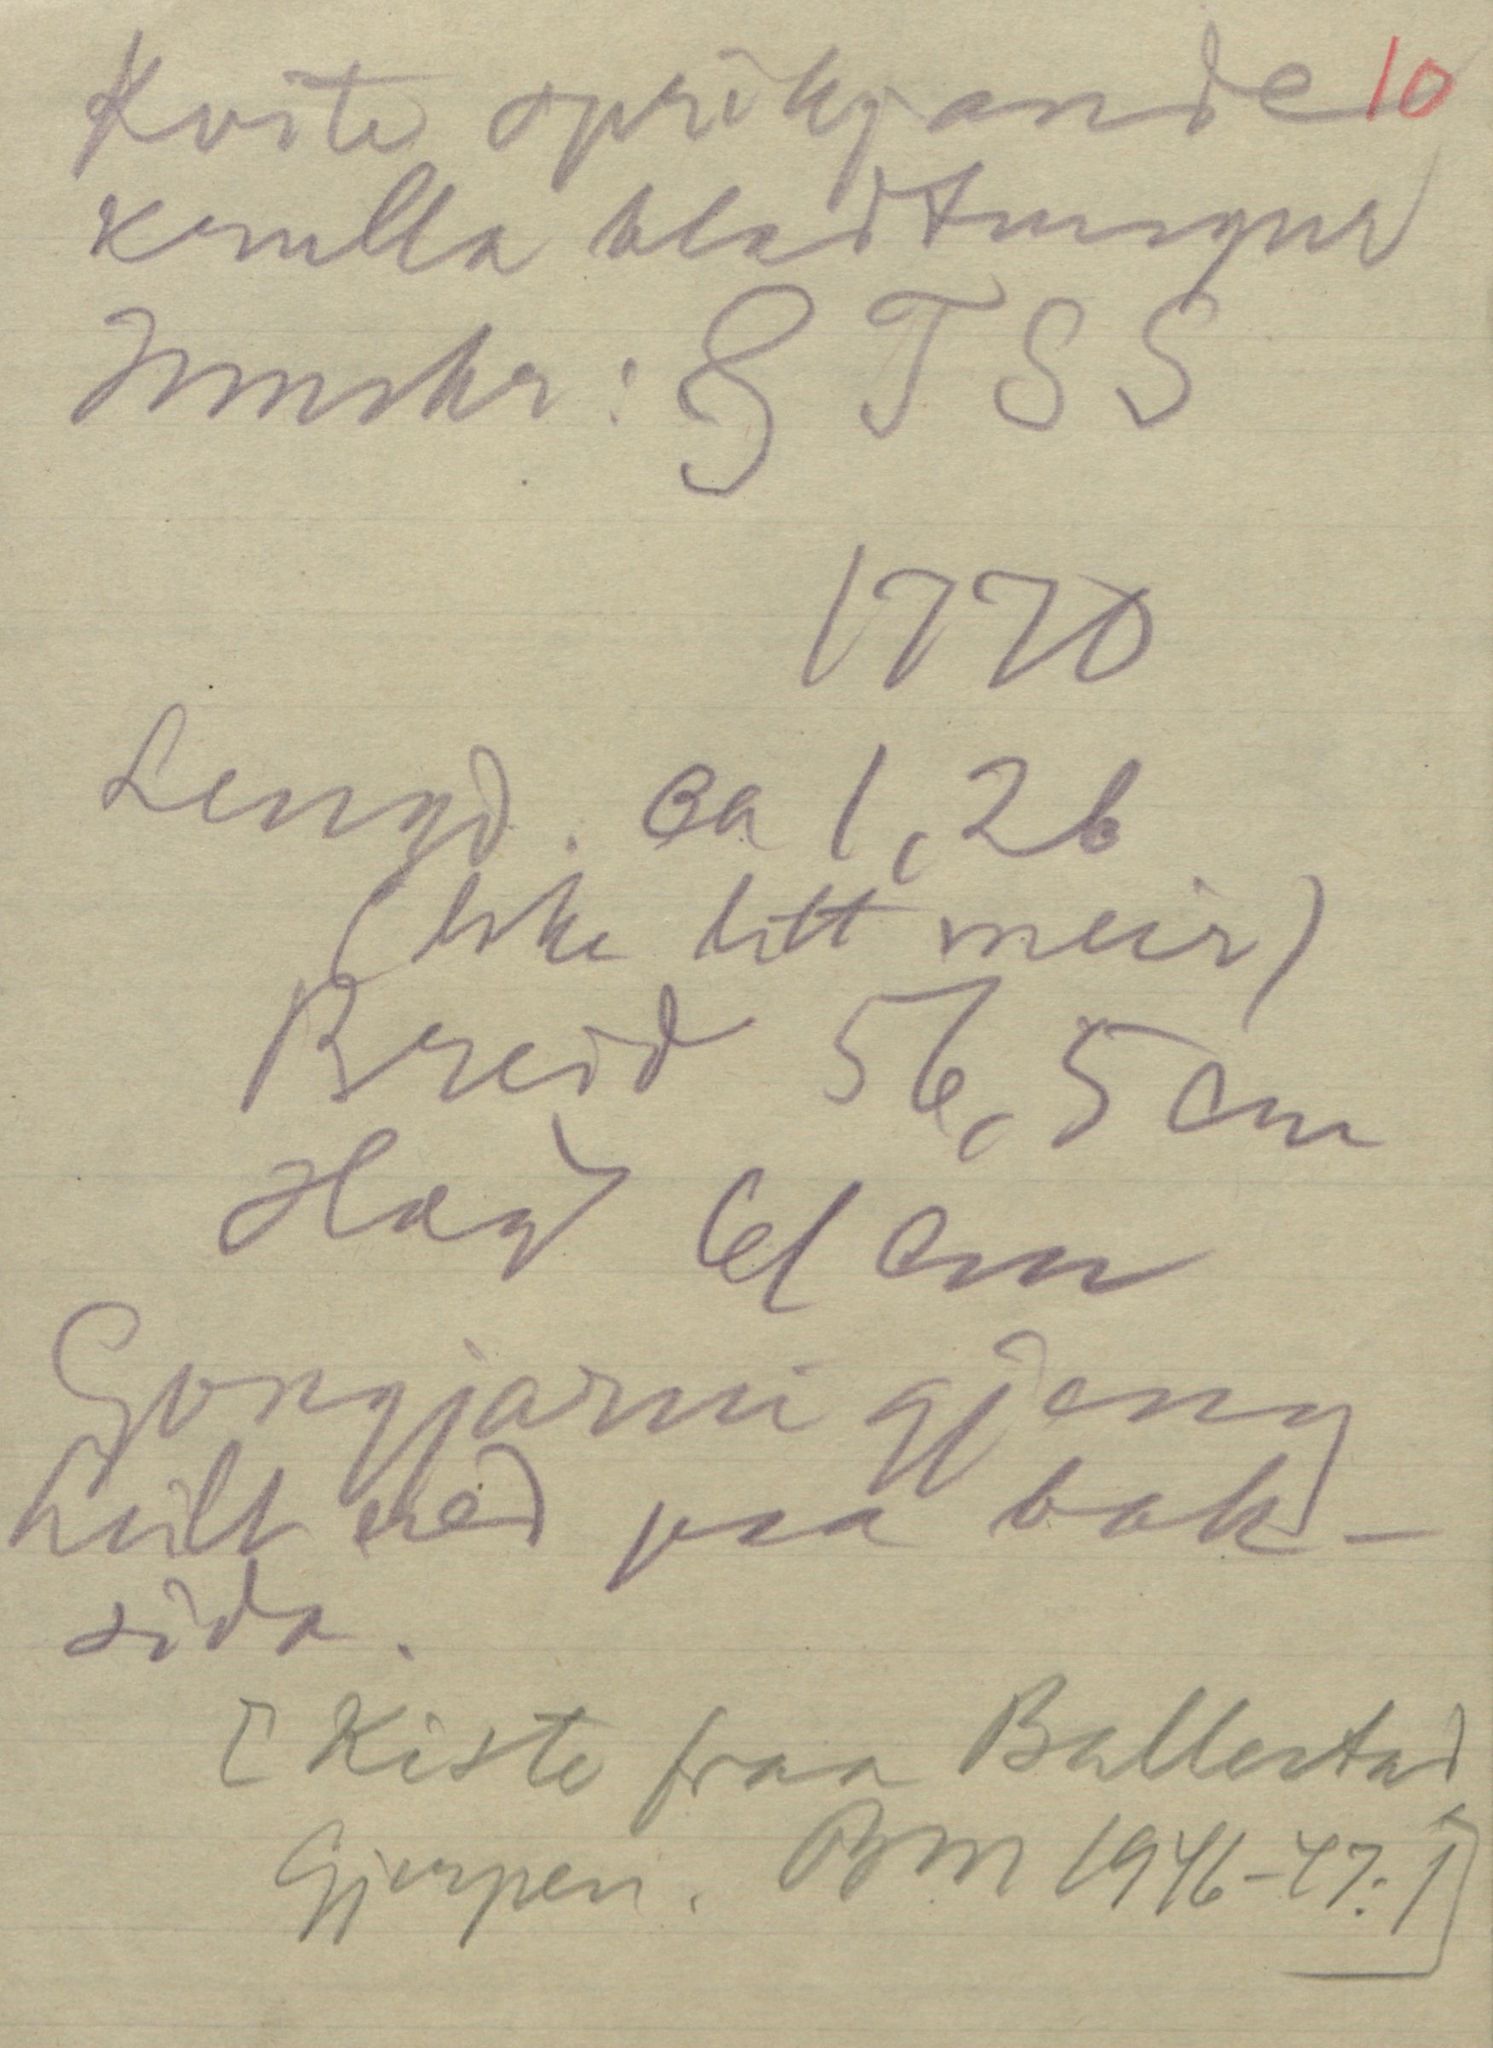 Kvite sprikjande 10
krulla bladtungur
Innskr: S T S S
1770
Lengd. ca 1,26
(ikke litt meir)
Breid 56,5 cm
Høgd 61 cm
Gongjarni gjeng
heilt ned paa bak-
sida.
[Kiste fraa Ballestad
Gjerpen. BM 1946-47: 1]